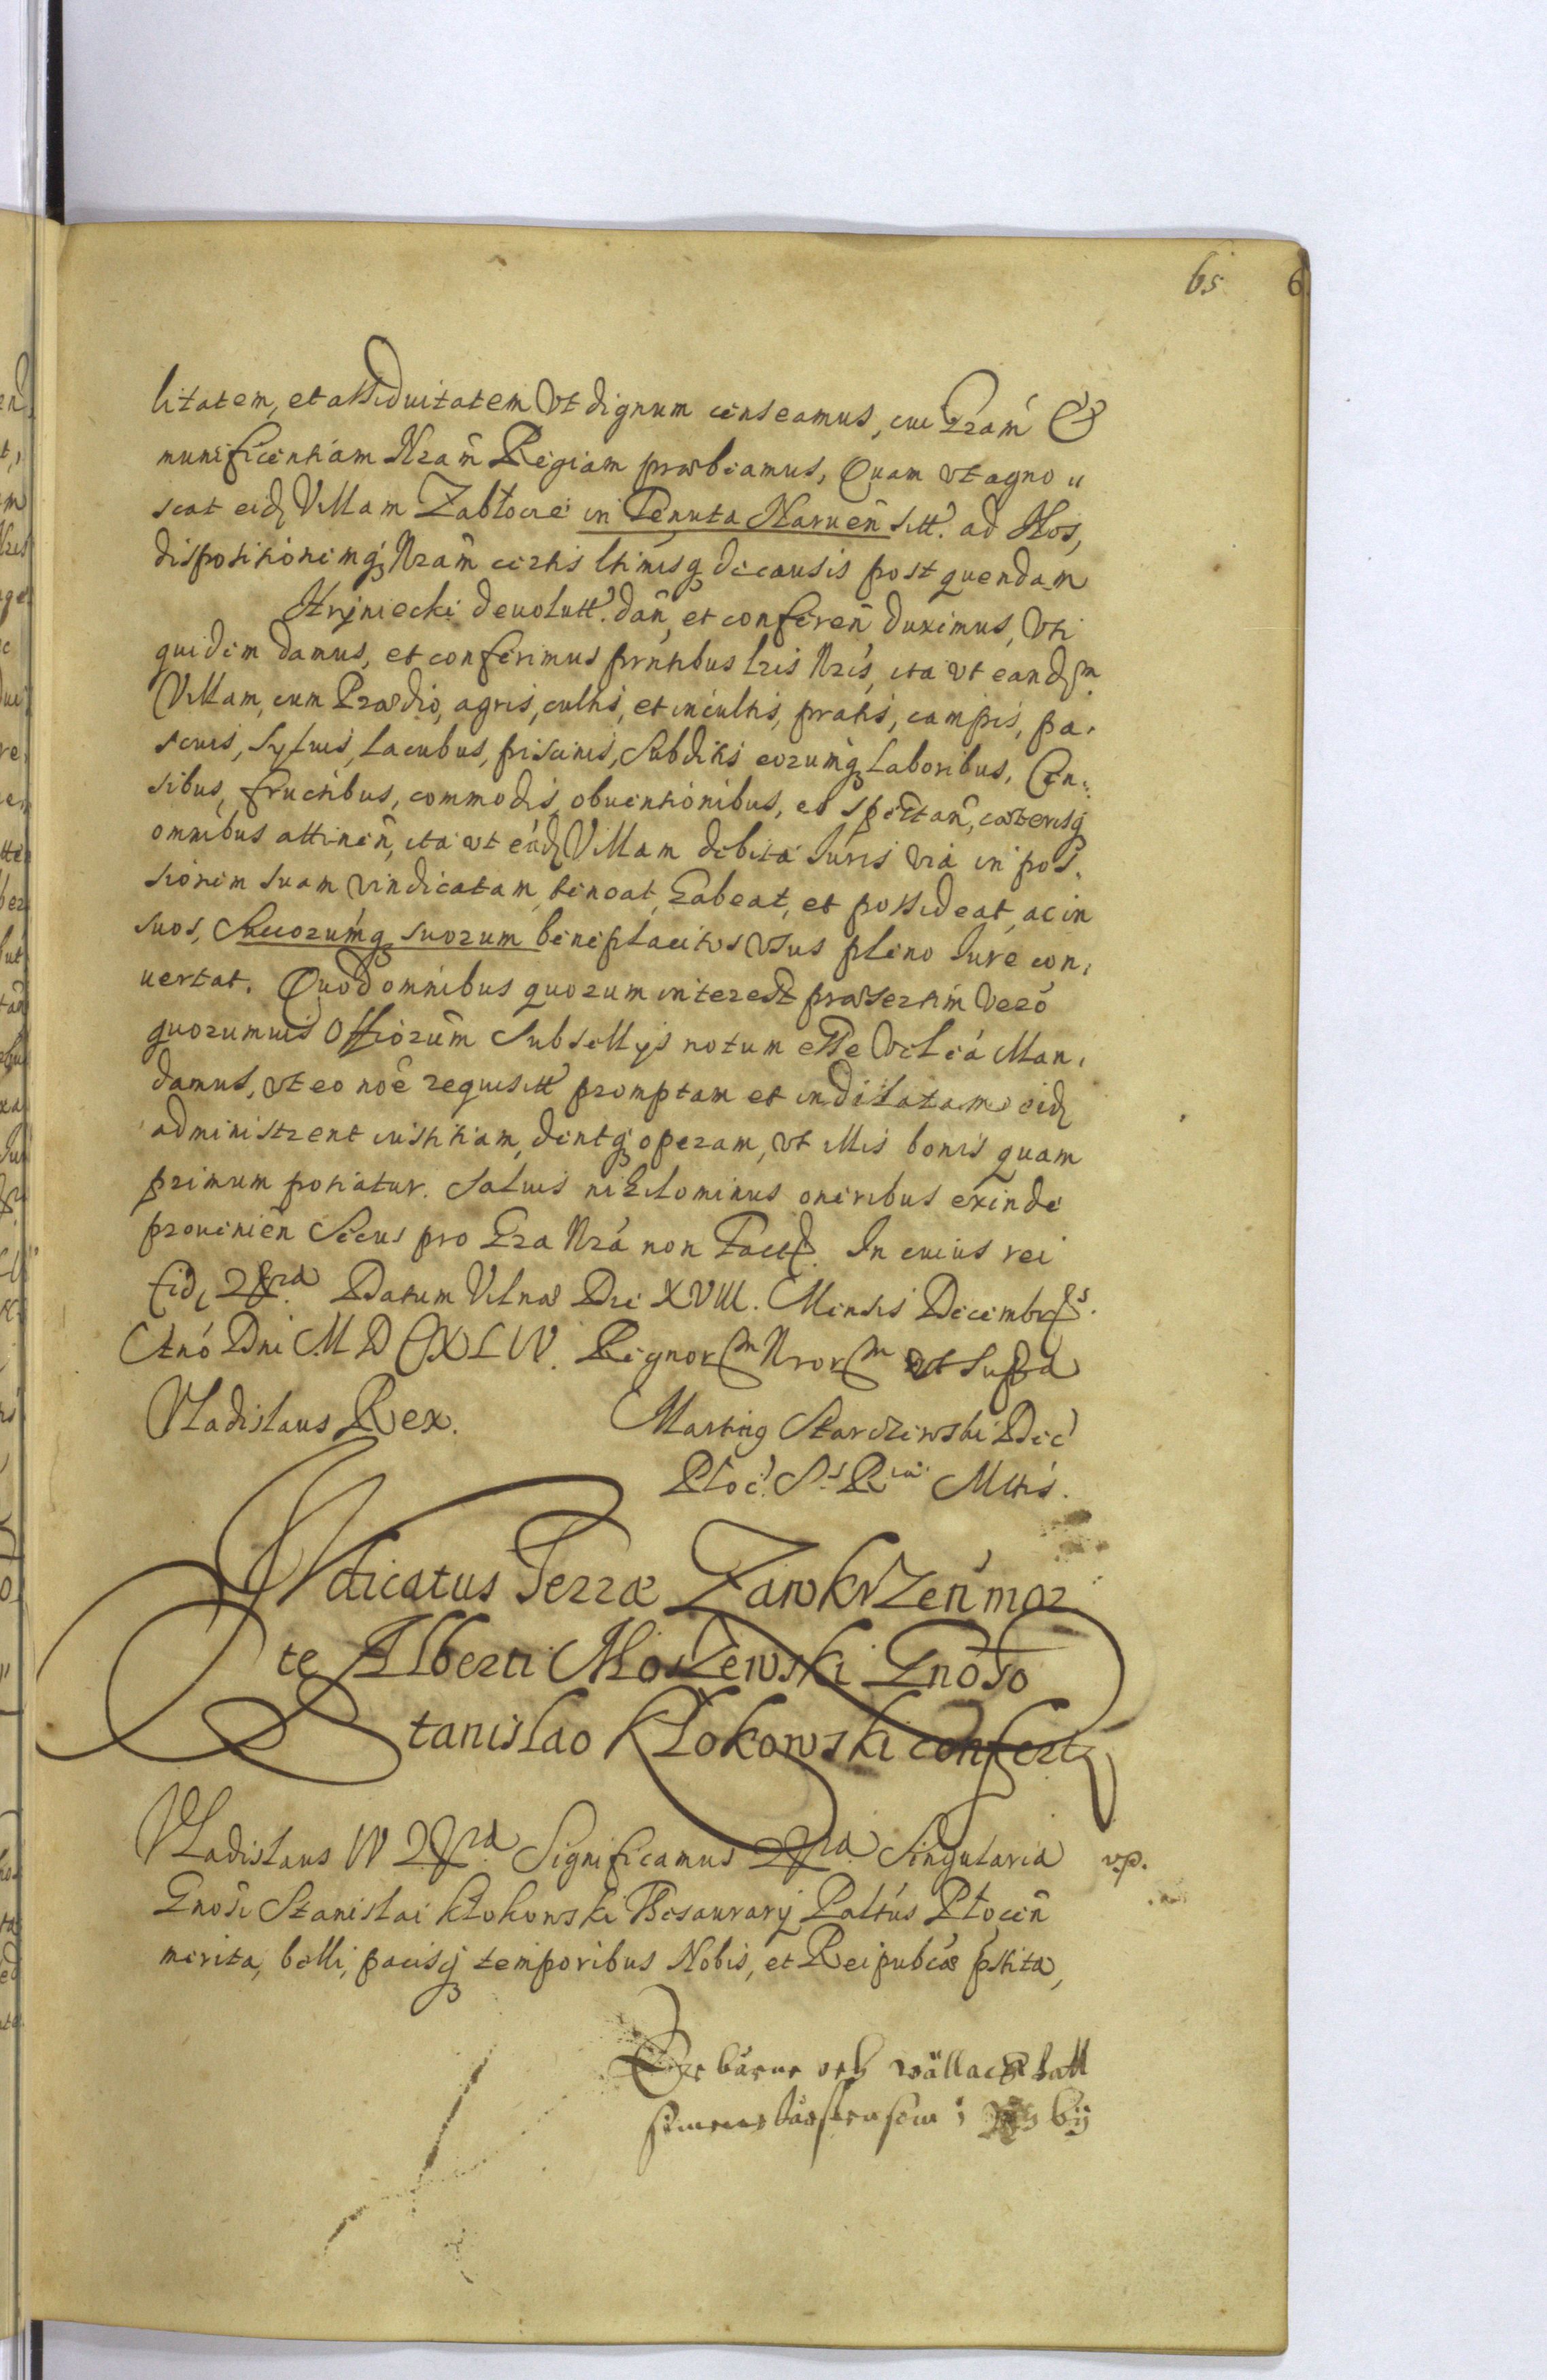 65 6
litatem, et assiduitatem vt dignum censeamus, cui Gra͠m &
munificentiam Nra͠m Regiam præbeamus, Quam vt agno„
scat eid. Villam Zabłocie in Tenuta Naruen̄ sitt. ad Nos,
dispositionemq; Nra͠m certis ltimisq; de causis post quendam
Hryniecki deuolutt. dan̄, et conferen̄ duximus, vti
quidem damus, et conferimus prntibus lris Nris, ita vt eandem
Villam, cum Prædio, agris, cultis, et incultis, pratis, campis, pa,
scuis, syluis, lacubus, piscinis, Subditis eorumq; laboribus, Cen:
sibus, fructibus, commodis, obuentionibus, eo spectan̄, cæterisq;
omnibus attinen̄, ita vt ea͠d. Villam debita Iuris via in pos,
sionem suam vindicatam, teneat, habeat, et possideat, ac in
suos, Succorumq; suorum beneplacitos vsus pleno Iure con,
uertat. Quod omnibus quorum interest præsertim verò
quorumuis Offiorum Subsellijs notum esse volēa Man,
damus, vt eo noe͠ requisitt promptam et indilatam eid.
administrent iustitiam, dentq; operam, vt illis bonis quam
primum potiatur. Saluis nihilominus oneribus exinde
prouenien̄ Secus pro Gra Nra non factt. In cuius rei
fid. &ra. Datum Vilnæ Die XVIII. Mensis Decembris.
Anó Dni M D C X L IV. Regnorum Nrorum vt supra
Vladislaus Rex. Martinq Starczewski Dec
Płoc. S. Riæ Mttis.
Aduocatus Terræ Zawkrzen̄ mor
te Alberti Moszewski Gnoso
Stanislao Kłokowski confert
Vladislaus IV &ra. Significamus &ra. Singularia vp.
Gnosi Stanislai Kłokowski Thesaurarij Paltús Płocen̄
merita, belli, pacisq; temporibus Nobis, et Reipubcæ pstita,
och wällach hatt
i bÿ